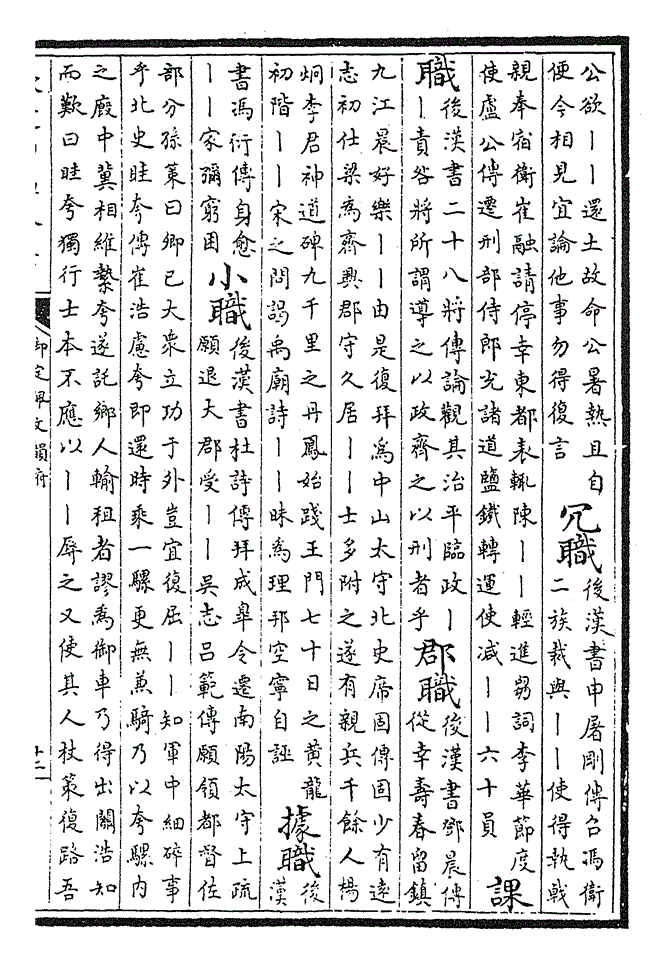 公欲丨丨還土故命公暑熱且自
便今相見宜論他事勿得復言
冗職
後漢書申屠剛傳召馮衛
二族裁與丨丨使得執戟
親奉宿衛崔融請停幸東都表輒陳丨丨輕進芻詞李華節度
使盧公傳遷刑部侍郎充諸道鹽鐵轉運使減丨丨六十員
課
職
後漢書二十八將傳論觀其治平臨政丨
丨責咎將所謂導之以政齊之以刑者乎
郡職
後漢書鄧晨傳
從幸壽春留鎮
九江晨好樂丨丨由是復拜爲中山太守北史席固傳固少有遠
志初仕梁爲齊興郡守久居丨丨士多附之遂有親兵千餘人楊
炯李君神道碑九千里之丹鳳始踐王門七十日之黃龍
初階丨丨宋之問謁禹廟詩丨丨昧爲理邦空寧自誣
據職
後
漢
書馮衍傳身愈
丨丨家彌窮困
小職
後漢書杜詩傳拜成臯令遷南陽太守上疏
願退大郡受丨丨吳志呂範傳願領都督佐
部分孫策曰卿已大衆立功于外豈宜復屈丨丨知軍中細碎事
乎北史眭夸傳崔浩慮夸即還時乘一騾更無兼騎乃以夸騾内
之廄中冀相維縶夸遂託鄉人輸租者謬爲御車乃得出關浩知
而歎曰眭夸獨行士本不應以丨丨辱之又使其人杖策復路吾
御定佩文韻府
十二